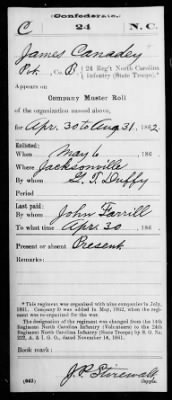 (Confederate.)
C 24 N.C.
James Canadey
Pvt., Co. B, 24 Reg't North Carolina
Infantry (State Troops).*
Appears on
Company Muster Roll
of the organization named above,
for Apr. 30 to Aug 31, 1862.
Enlisted:
When May 6, 186
Where Jacksonville
By whom G. T. Duffy
Period
Last paid:
By whom John Farrill
To what time Apr. 30, 186
Present or absent Present
Remarks:
*This regiment was organized with nine companies in July,
1861. Company D was added in May, 1862, when the regi-
ment was re-organized for the war.
The designation of the regiment was changed from the 14th
Regiment North Carolina Infantry (Volunteers) to the 24th
Regiment North Carolina Infantry (State Troops) by S. O. No.
222, A. & I. G. O., dated November 14, 1861.
Book mark:
(642)
J. P. Stirewalt
Copyist.